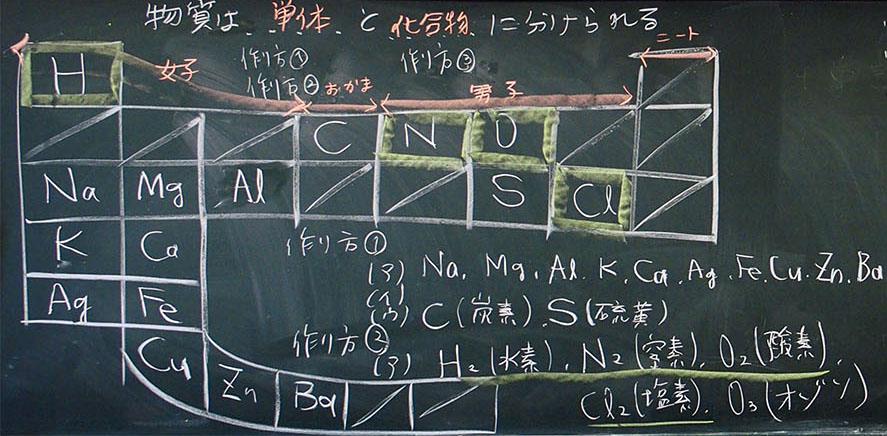 物質は、単体、と化合物、に分けられる
ニート
女子 作り方① 作り方③
作り方② おかま 男子
H
C N O
Na Mg Al S Cl
K Ca 作り方①
(ｱ) Na, Mg, Al, K, Ca, Ag, Fe, Cu, Zn, Ba
Ag Fe (ｲ)
(ｳ) C(炭素), S(硫黄)
Cu 作り方②
(ｱ) H₂(水素), N₂(窒素), O₂(酸素),
Zn Ba Cl₂(塩素), O₃(オゾン)